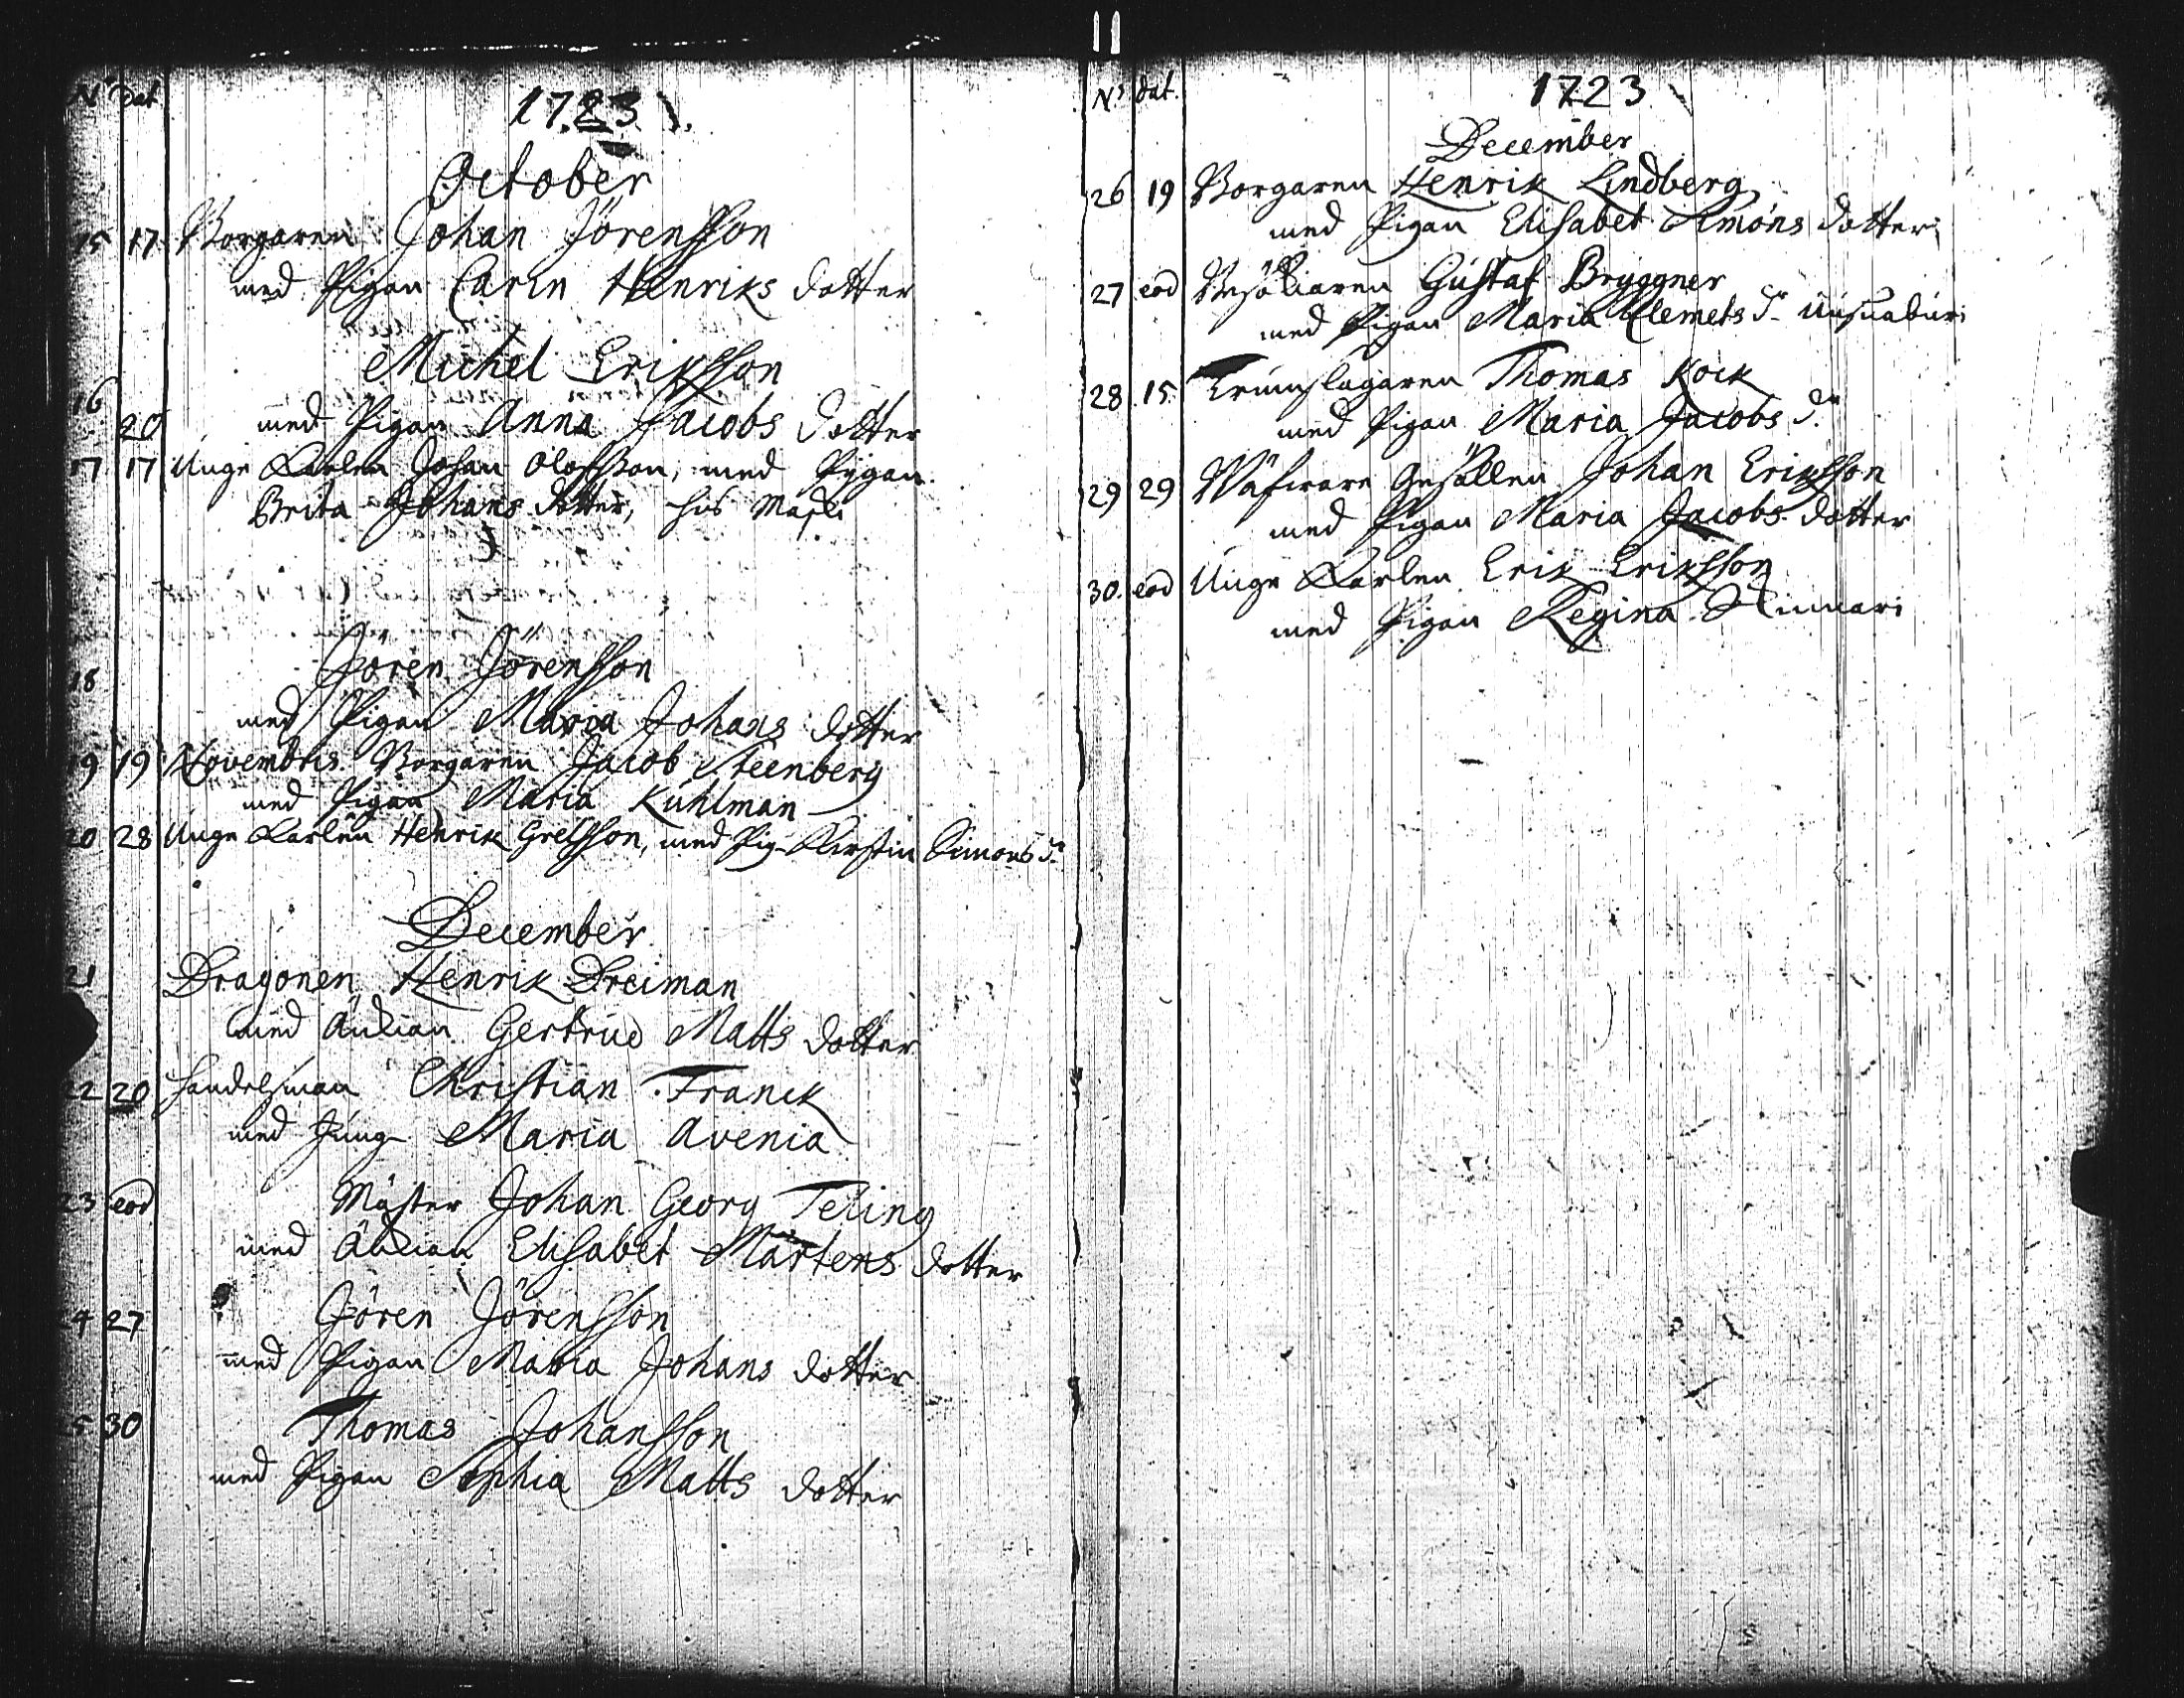 N° Dat
1723.
October
15 17 Borgaren Johan Jörensson
med Pigan Carin Henriks dotter
Michel Eriksson
16
20 med Pigan Anna Jacobs dotter
17 17 Unge Karlen Johan Olofsson, med Pigan
Brita Johans dotter, hos
18 Jören Jörensson
med Pigan Maria Johans dotter
19 19 Novembris. Borgaren Jacob Steenberg
med Pigan Maria Kuhlman
20 28 Unge Karlen Henrik Grelsson, med Pig. Kirstin Simons dr
December
21 Dragonen Henrik Dreiman
med Änkian Gertrud Matts dotter
22 20 Handelsman Christian Franck
med Jung. Maria Avenia
23 eod Mäster Johan Georg Teling
med Änkian Elisabet Mårtens dotter
24 27 Jören Jörensson
med Pigan Maria Johans dotter
25 30 Thomas Johansson
med Pigan Sophia Matts dotter
N° dat.
1723
December
26 19 Borgaren Henrik Lindberg
med Pigan Elisabet Simons dotter
27 eod Gustaf Bryggner
med Pigan Maria Clemets dr
28 15 Trumslagaren Thomas Kock
med Pigan Maria Jacobs dr
29 29 Wäfware Gesällen Johan Eriksson
med Pigan Maria Jacobs dotter
30. eod Unge Karlen Erik Eriksson
med Pigan Regina